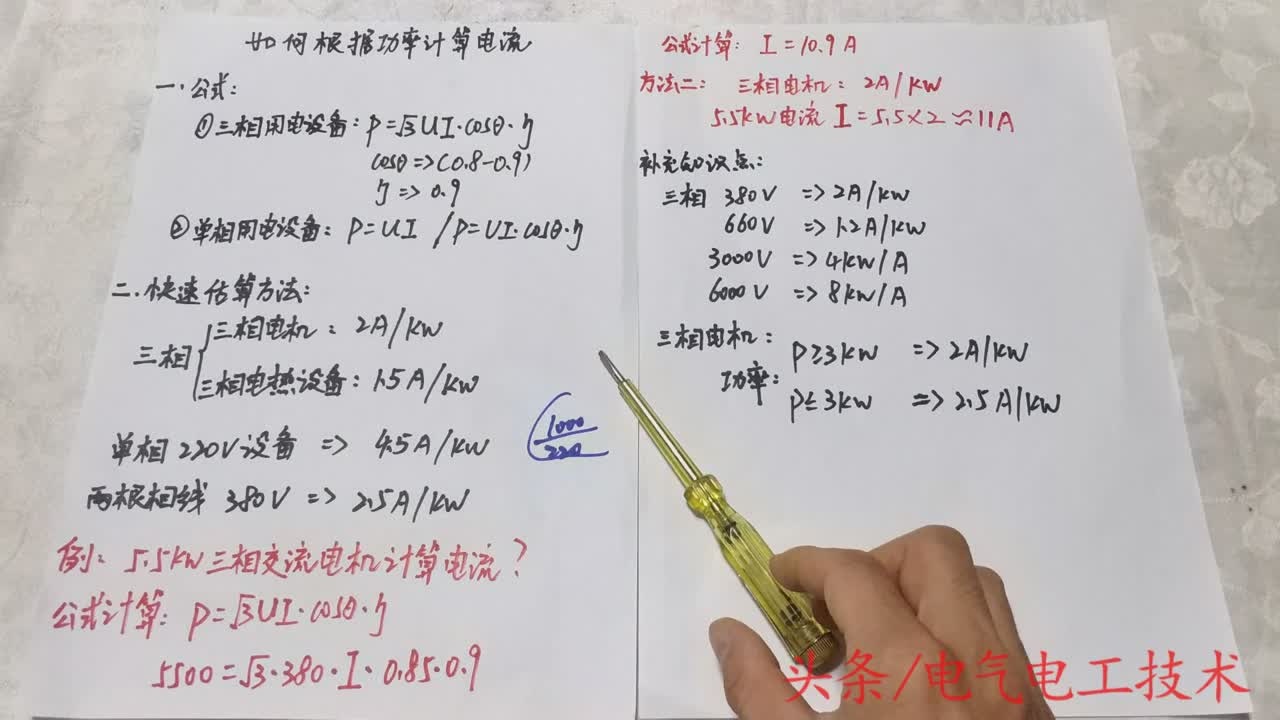 如何根据功率计算电流
一.公式:
①三相用电设备:P=√3UI·cosθ·η
cosθ=>(0.8-0.9)
η=>0.9
②单相用电设备:P=UI /P=UI·cosθ·η
二.快速估算方法:
三相
三相电机:2A/kW
三相电热设备:1.5A/kW
单相220V设备 => 4.5A/kW
1000
220
两根相线 380V => 2.5A/kW
例:5.5kW三相交流电机计算电流?
公式计算:P=√3UI·cosθ·η
5500=√3·380·I·0.85·0.9
公式计算:I=10.9A
方法二:三相电机:2A/kW
5.5kW电流 I=5.5×2≈11A
补充知识点:
三相 380V => 2A/kW
660V => 1.2A/kW
3000V => 4kW/A
6000V => 8kW/A
三相电机:P≥3kW => 2A/kW
功率:P≤3kW => 2.5A/kW
头条/电气电工技术